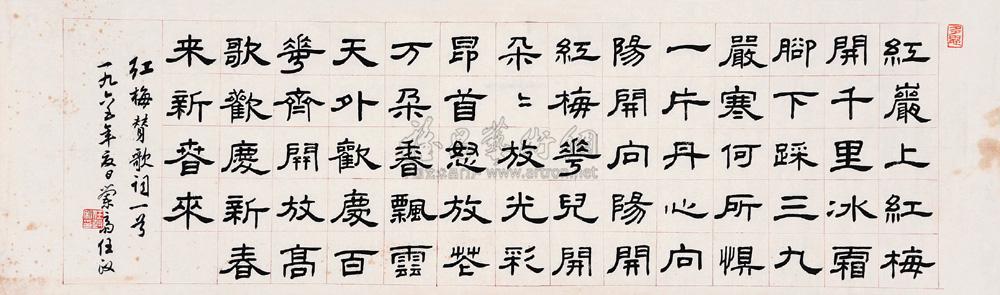 紅巖上紅梅
開千里冰霜
腳下踩三九
嚴寒何所惧
一片丹心向
陽開向陽開
紅梅華兒開
朵〻放光彩
昂首怒放花
万朵香飄雲
天外歡慶百
華齊開放高
歌歡慶新春
来新春來
红梅赞歌词一首
一九六五年夏日 任政
雅昌藝術網
www.artron.net